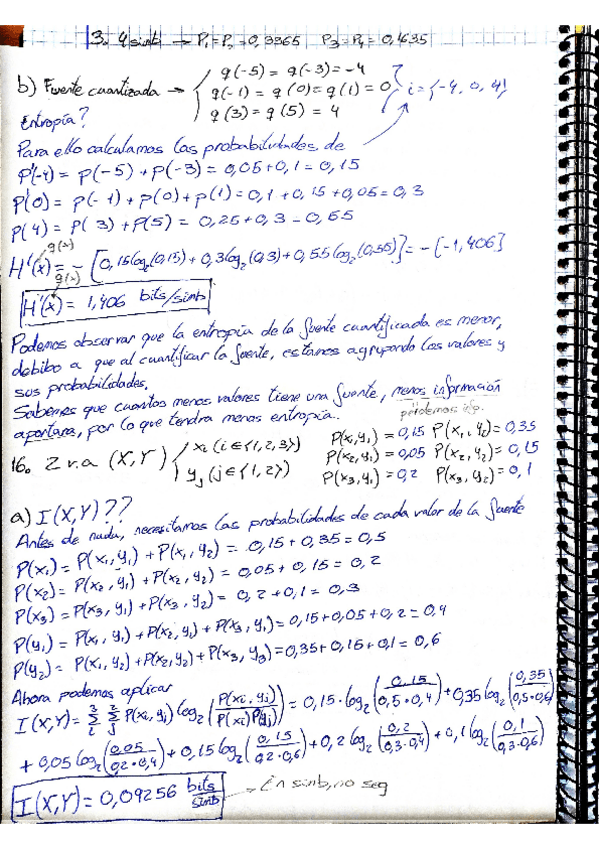 3. 4 simb → P₁=P₂=0,3365 P₃=P₄=0,1635
b) Fuente cuantizada → { q(-5) = q(-3) = -4
q(-1) = q(0) = q(1) = 0 } i = {-4, 0, 4}
q(3) = q(5) = 4
Entropía?
Para ello calculamos las probabilidades de
P'(-4) = p(-5) + p(-3) = 0,05+0,1 = 0,15
P'(0) = p(-1) + p(0) + p(1) = 0,1 + 0,15 + 0,05 = 0,3
P(4) = P(3) + P(5) = 0,25 + 0,3 = 0,55
q(x)
H'(x) = -[0,15log₂(0,15) + 0,3log₂(0,3) + 0,55log₂(0,55)] = -[-1,406]
q(x)
H'(x) = 1,406 bits/simb
Podemos observar que la entropía de la fuente cuantificada es menor,
debibo a que al cuantificar la fuente, estamos agrupando los valores y
sus probabilidades.
Sabemos que cuantos menos valores tiene una fuente, menos información
aportara, por lo que tendra menos entropía. perdemos
16. 2 v.a (X,Y) { xi (i ∈ {1,2,3}) P(x₁y₁) = 0,15 P(x₁,y₂) = 0,35
yj (j ∈ {1,2}) P(x₂,y₁) = 0,05 P(x₂,y₂) = 0,15
P(x₃,y₁) = 0,2 P(x₃,y₂) = 0,1
a) I(X,Y)??
Antes de nada, necesitamos las probabilidades de cada valor de la fuente
P(x₁) = P(x₁,y₁) + P(x₁,y₂) = 0,15 + 0,35 = 0,5
P(x₂) = P(x₂,y₁) + P(x₂,y₂) = 0,05 + 0,15 = 0,2
P(x₃) = P(x₃,y₁) + P(x₃,y₂) = 0,2 + 0,1 = 0,3
P(y₁) = P(x₁,y₁) + P(x₂,y₁) + P(x₃,y₁) = 0,15 + 0,05 + 0,2 = 0,4
P(y₂) = P(x₁,y₂) + P(x₂,y₂) + P(x₃,y₃) = 0,35 + 0,15 + 0,1 = 0,6
Ahora podemos aplicar
I(X,Y) = Σ Σ P(xi,yj) log₂(P(xi,yj)/P(xi)P(yj)) = 0,15·log₂(0,15/0,5·0,4) + 0,35log₂(0,35/0,5·0,6)
+ 0,05log₂(0,05/0,2·0,4) + 0,15log₂(0,15/0,2·0,6) + 0,2log₂(0,2/0,3·0,4) + 0,1log₂(0,1/0,3·0,6)
I(X,Y) = 0,09256 bits/simb En simb, no seg